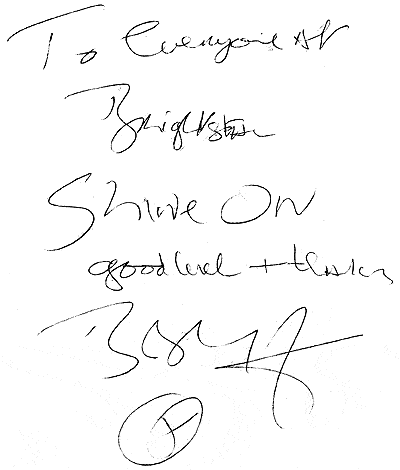 To Everyone At
Brightstar
Shine On
good luck + thanks